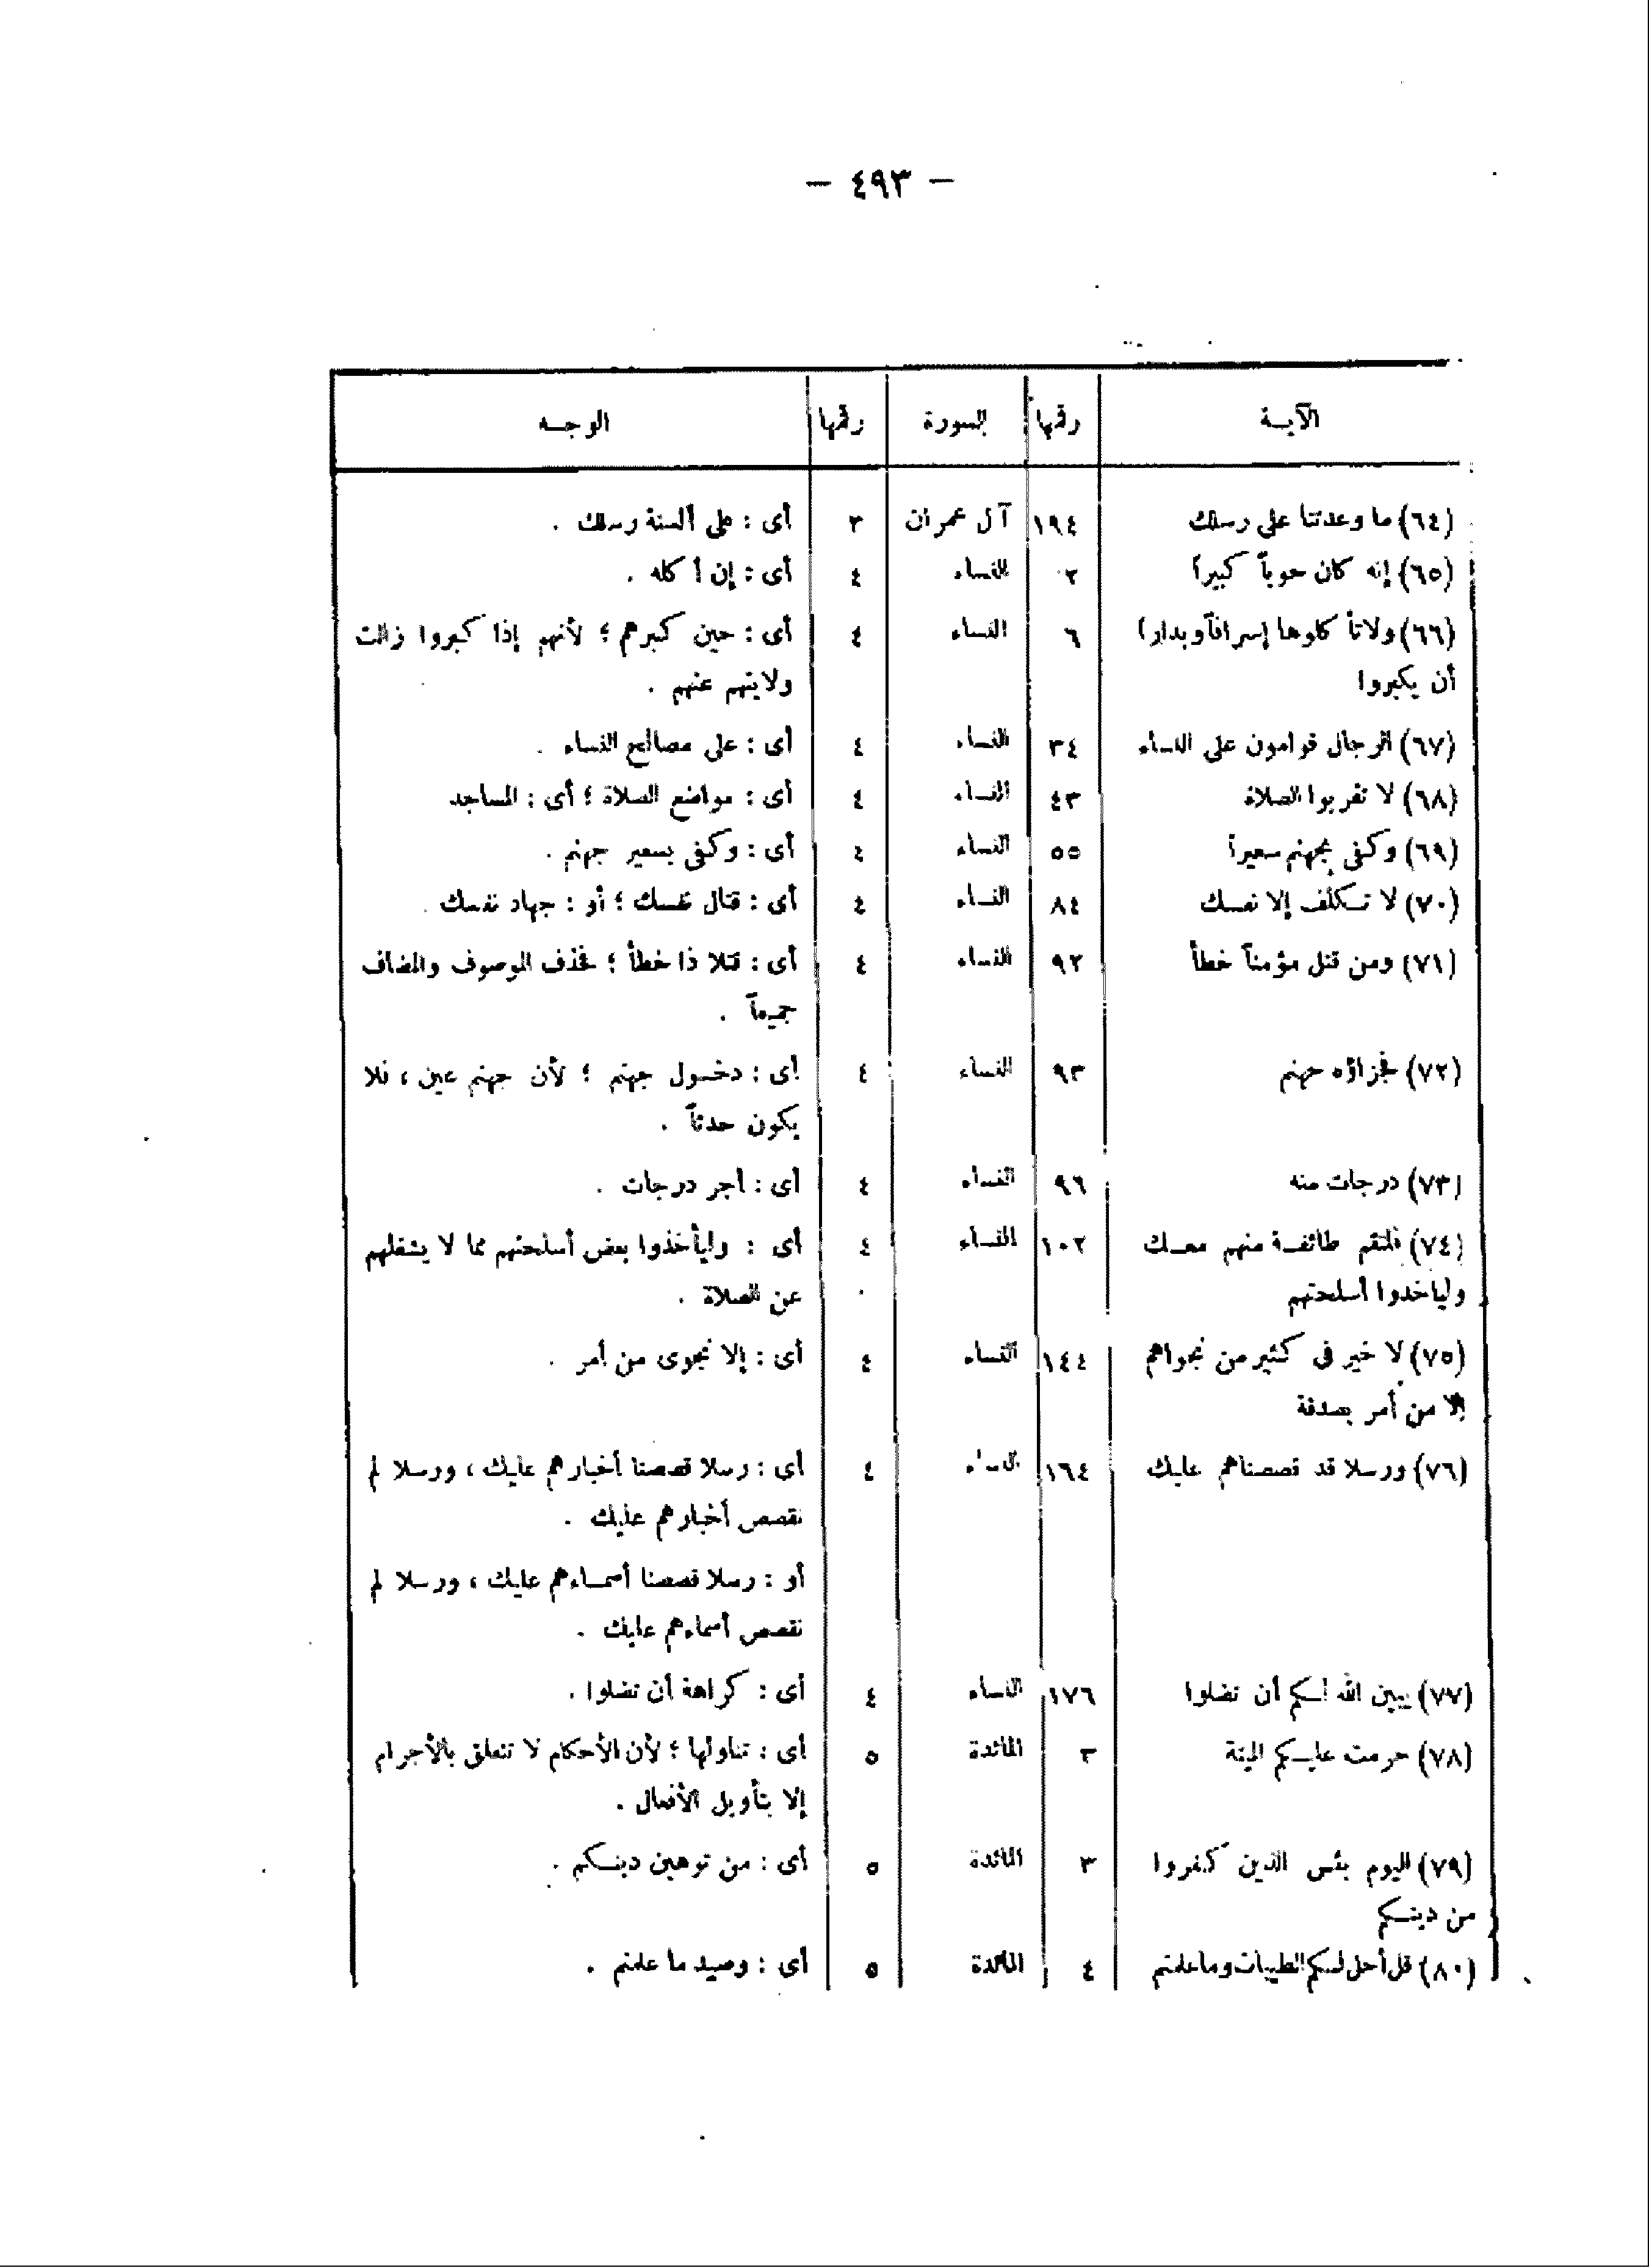 — ٤٩٣ —
الآية رقمها السورة رقمها الوجه
(٦٤) ما وعدتنا على رسلك ١٩٤ آل عمران ٣ أى : على ألسنة رسلك .
(٦٥) إنه كان حوباً كبيراً ٢ النساء ٤ أى : إن أكله .
(٦٦) ولا تأكلوها إسرافاً وبداراً ٦ النساء ٤ أى : حين كبرهم ؛ لأنهم إذا كبروا زالت
أن يكبروا ولايتهم عنهم .
(٦٧) الرجال قوامون على النساء ٣٤ النساء ٤ أى : على مصالح النساء .
(٦٨) لا تقربوا الصلاة ٤٣ النساء ٤ أى : مواضع الصلاة ؛ أى : المساجد
(٦٩) وكفى بجهنم سعيراً ٥٥ النساء ٤ أى : وكفى بسعير جهنم .
(٧٠) لا تكلف إلا نفسك ٨٤ النساء ٤ أى : قتال نفسك ؛ أو : جهاد نفسك .
(٧١) ومن قتل مؤمناً خطأ ٩٢ النساء ٤ أى : قتلا ذا خطأ ؛ فحذف الموصوف والمضاف
جميعاً .
(٧٢) فجزاؤه جهنم ٩٣ النساء ٤ أى : دخول جهنم ؛ لأن جهنم عين ، فلا
يكون حدثاً .
(٧٣) درجات منه ٩٦ النساء ٤ أى : أجر درجات .
(٧٤) فلتقم طائفة منهم معك ١٠٢ النساء ٤ أى : وليأخذوا بعض أسلحتهم مما لا يشغلهم
وليأخذوا أسلحتهم عن الصلاة .
(٧٥) لا خير فى كثير من نجواهم ١٤٤ النساء ٤ أى : إلا نجوى من أمر .
إلا من أمر بصدقة
(٧٦) ورسلا قد قصصناهم عليك ١٦٤ النساء ٤ أى : رسلا قصصنا أخبارهم عليك ، ورسلا لم
نقصص أخبارهم عليك .
أو : رسلا قصصنا أسماءهم عليك ، ورسلا لم
نقصص أسماءهم عليك .
(٧٧) يبين الله لكم أن تضلوا ١٧٦ النساء ٤ أى : كراهة أن تضلوا .
(٧٨) حرمت عليكم الميتة ٣ المائدة ٥ أى : تناولها ؛ لأن الأحكام لا تتعلق بالأجرام
إلا بتأويل الأفعال .
(٧٩) اليوم يئس الذين كفروا ٣ المائدة ٥ أى : من توهين دينكم .
من دينكم
(٨٠) قل أحل لكم الطيبات وما علمتم ٤ المائدة ٥ أى : وصيد ما علمتم .